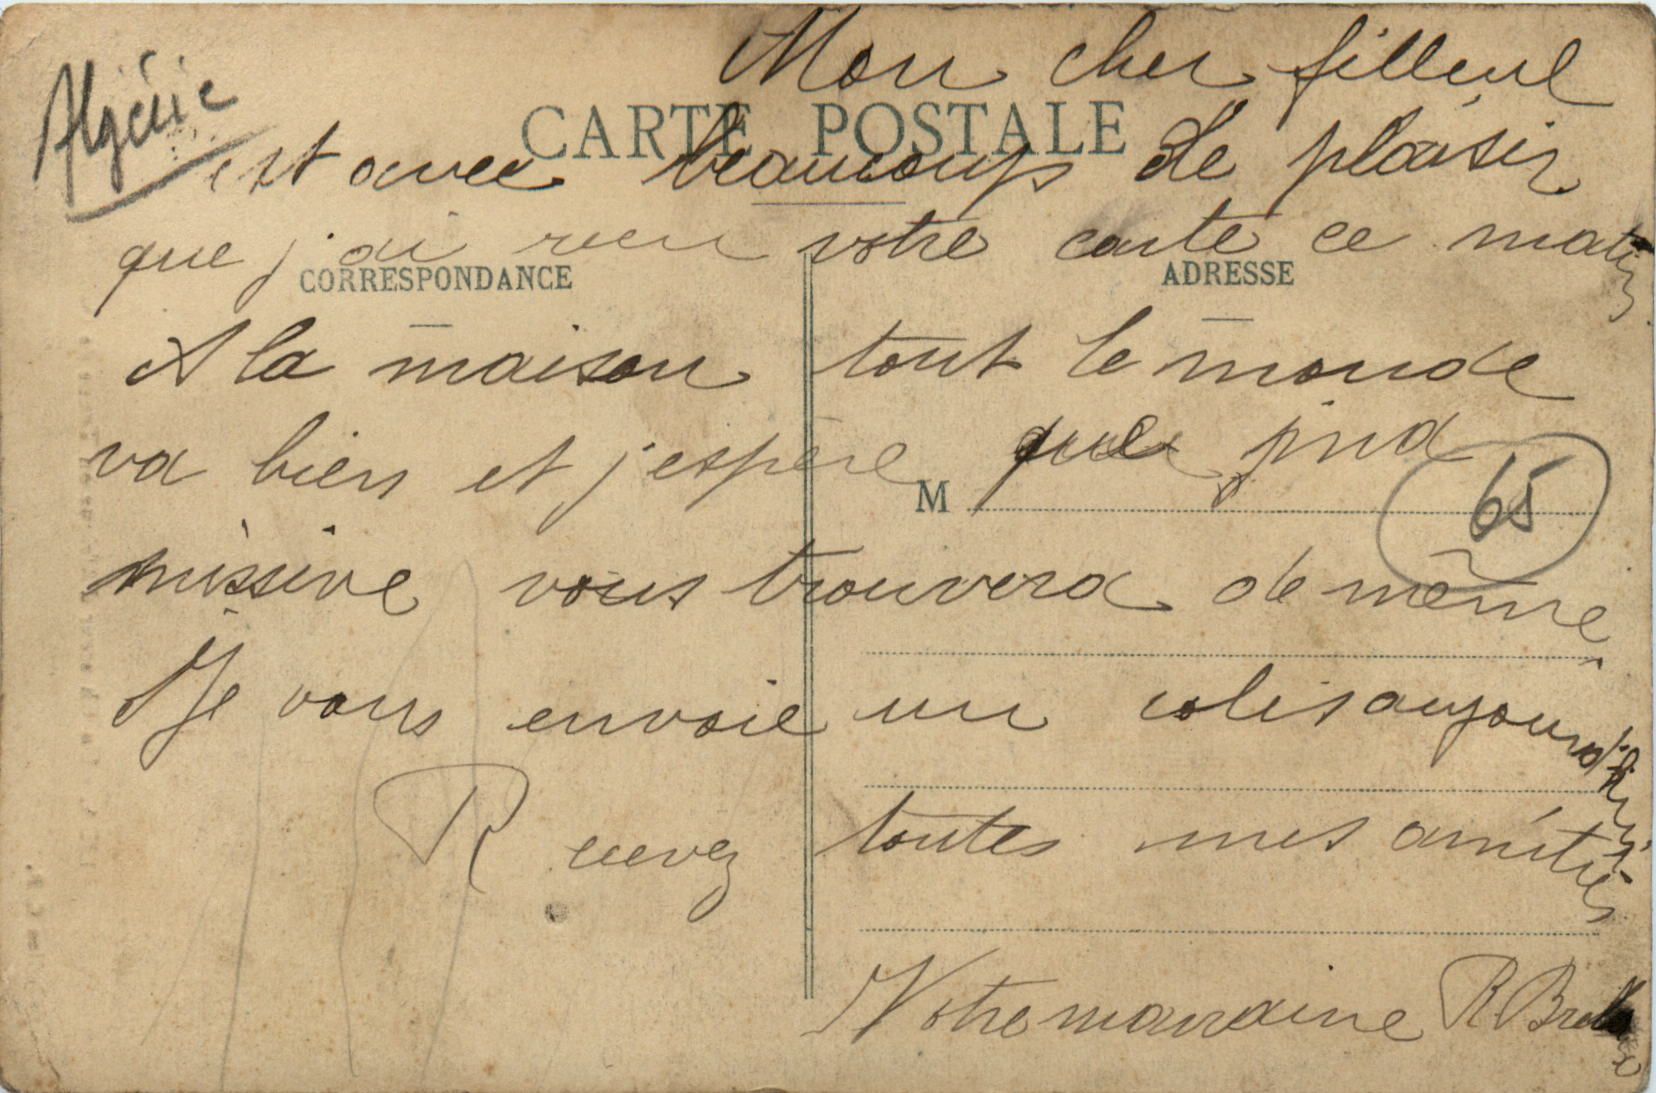 Algérie
Mon cher filleul
CARTE POSTALE
est avec beaucoup de plaisir
que j'ai recu votre carte ce matin
CORRESPONDANCE
ADRESSE
A la maison tout le monde
va bien et j'espère que
M
65
missive vous trouvera de même
Je vous envoie un colis aujourd'hui
Recevez toutes mes amitiés
Votre marraine R